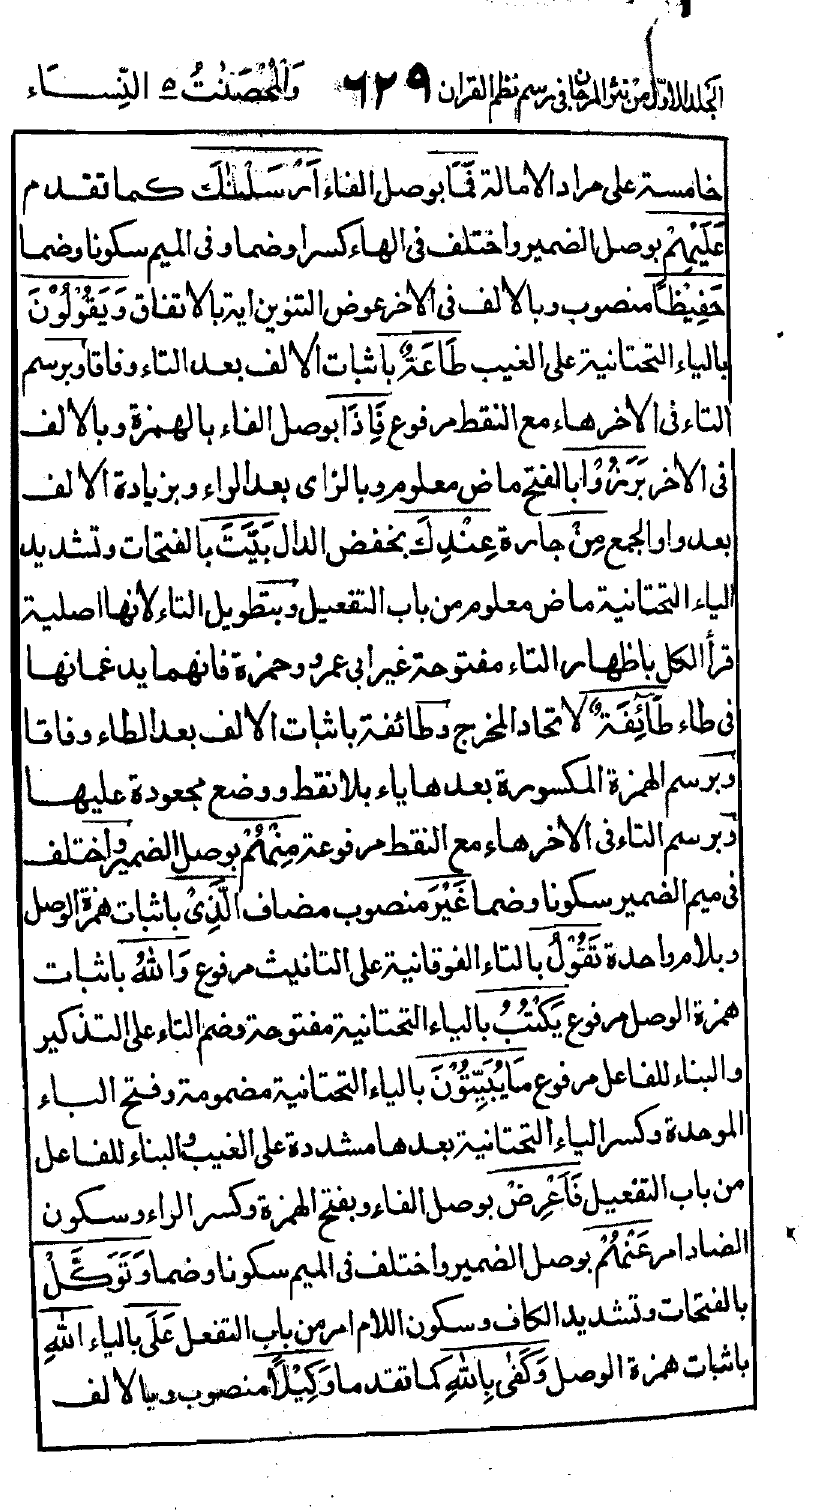 الجلد الاول من نثر المرجان في رسم نظم القران ٦٢٩ وَالْمُحْصَنٰتُ ٥ النِّسَاء
خامسة على مراد الامالة فَمَا بوصل الفاء اَرْسَلْنٰكَ كما تقدم
عَلَيْهِمْ بوصل الضمير واختلف فى الهاء كسرا وضما وفى الميم سكونا وضما
حَفِيْظًا منصوب وبالالف فى الاخر عوض التنوين اية بالاتفاق وَيَقُوْلُوْنَ
بالياء التحتانية على الغيب طَاعَةٌ باثبات الالف بعد التاء وفاقا وبرسم
التاء فى الاخر هاء مع النقط مرفوع فَاِذَا بوصل الفاء بالهمزة وبالالف
فى الاخر بَرَزُوْا بالفتح ماض معلوم وبالزاى بعد الراء وبزيادة الالف
بعد واو الجمع مِنْ جارة عِنْدِكَ بخفض الدال بَيَّتَ بالفتحات وتشديد
الياء التحتانية ماض معلوم من باب التفعيل وبتطويل التاء لانها اصلية
قرأ الكل باظهار التاء مفتوحة غير ابى عمرو وحمزة فانهما يدغمانها
فى طاء طَآئِفَةٌ لاتحاد المخرج وطائفة باثبات الالف بعد الطاء وفاقا
وبرسم الهمزة المكسورة بعدها ياء بلا نقط ووضع مجعودة عليها
وبرسم التاء فى الاخر هاء مع النقط مرفوعة مِنْهُمْ بوصل الضمير واختلف
فى ميم الضمير سكونا وضما غَيْرَ منصوب مضاف الَّذِىْ باثبات همزة الوصل
وبلام واحدة تَقُوْلُ بالتاء الفوقانية على التانيث مرفوع وَاللّٰهُ باثبات
همزة الوصل مرفوع يَكْتُبُ بالياء التحتانية مفتوحة وضم التاء على التذكير
والبناء للفاعل مرفوع مَا يُبَيِّتُوْنَ بالياء التحتانية مضمومة وفتح الباء
الموحدة وكسر الياء التحتانية بعدها مشددة على الغيب والبناء للفاعل
من باب التفعيل فَاَعْرِضْ بوصل الفاء وبفتح الهمزة وكسر الراء وسكون
الضاد امر عَنْهُمْ بوصل الضمير واختلف فى الميم سكونا وضما وَتَوَكَّلْ
بالفتحات وتشديد الكاف وسكون اللام امر من باب التفعل عَلَى بالياء اللّٰهِ
باثبات همزة الوصل وَكَفٰى بِاللّٰهِ كما تقدما وَكِيْلًا منصوب وبالالف